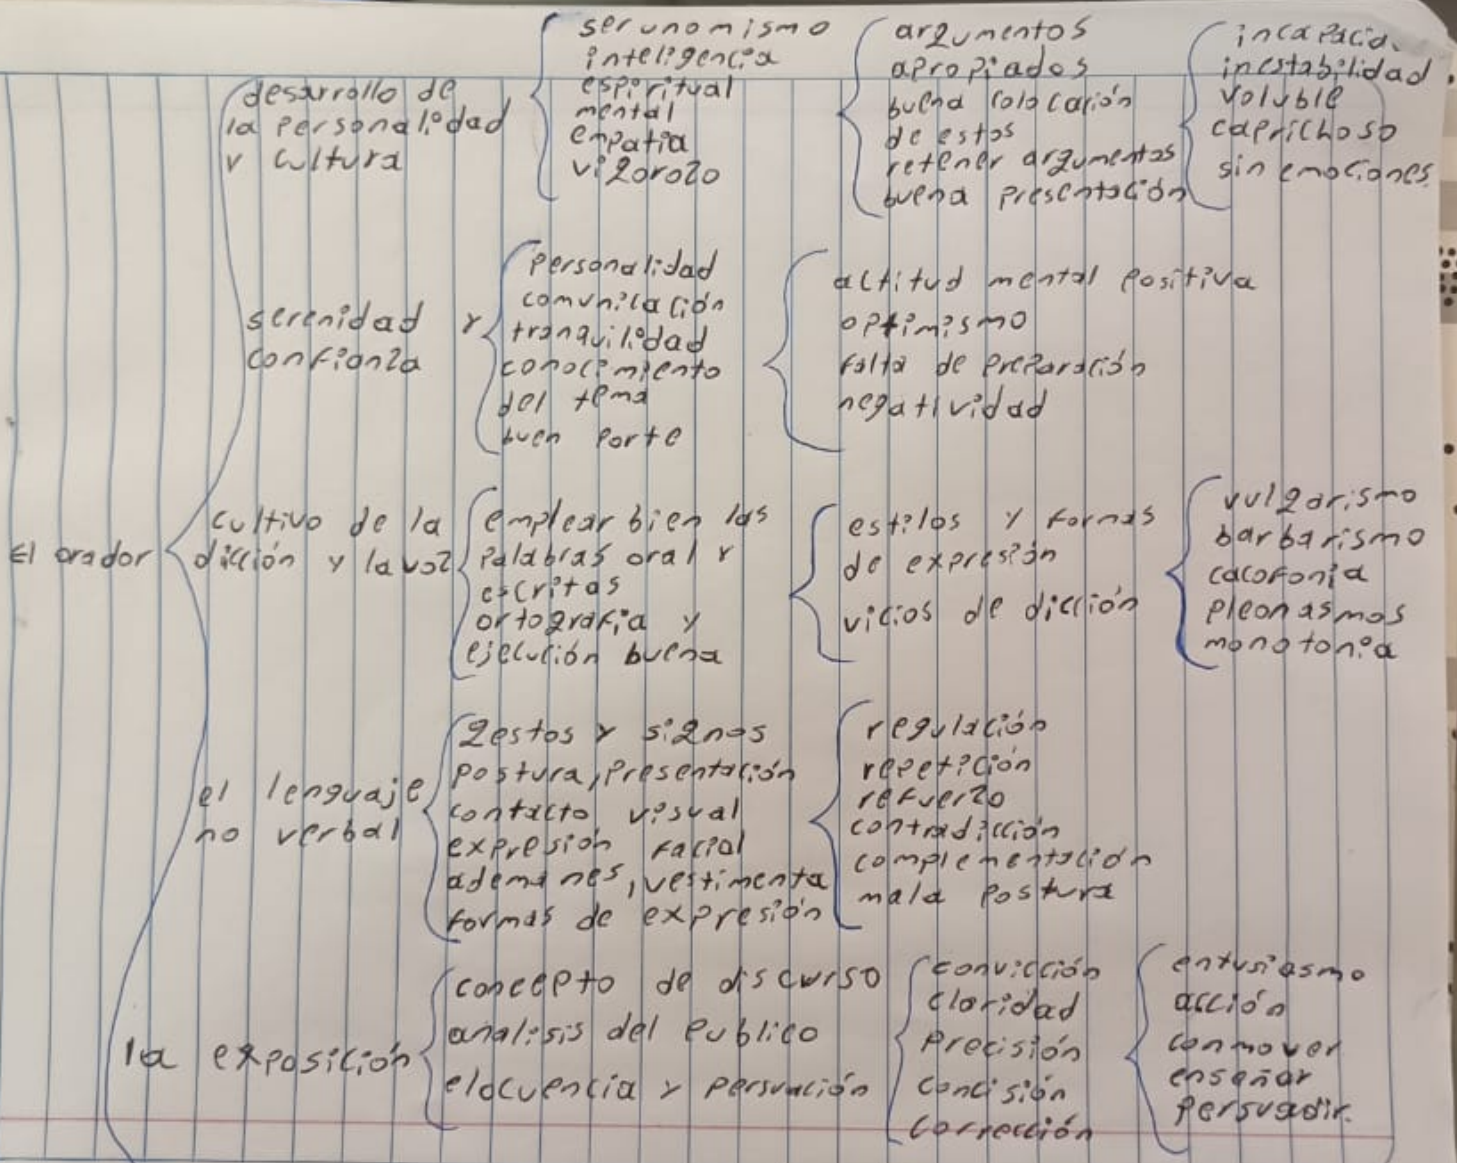 El orador
desarrollo de
la personalidad
y cultura
ser uno mismo
inteligencia
espiritual
mental
empatia
vigorozo
argumentos
apropiados
buena colocación
de estos
retener argumentos
buena presentación
incapacid
inestabilidad
voluble
caprichoso
sin emociones
serenidad y
confianza
personalidad
comunicación
tranquilidad
conocimiento
del tema
buen porte
actitud mental positiva
optimismo
falta de preparación
negatividad
cultivo de la
dicción y la voz
emplear bien las
palabras oral y
escritas
ortografia y
ejecución buena
estilos y formas
de expresión
vicios de dicción
vulgarismo
barbarismo
cacofonia
pleonasmos
monotonia
el lenguaje
no verbal
gestos y signos
postura, presentación
contacto visual
expresión facial
ademanes, vestimenta
formas de expresión
regulación
repetición
refuerzo
contradicción
complementación
mala postura
la exposición
concepto de discurso
analisis del publico
elocuencia y persuación
convicción
claridad
precisión
concisión
corrección
entusiasmo
acción
conmover
enseñar
persuadir.